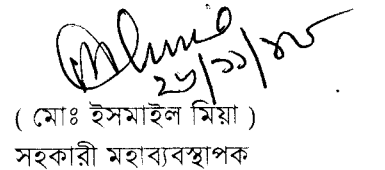 ২৬/১১/২৮
( মোঃ ইসমাইল মিয়া )
সহকারী মহাব্যবস্থাপক